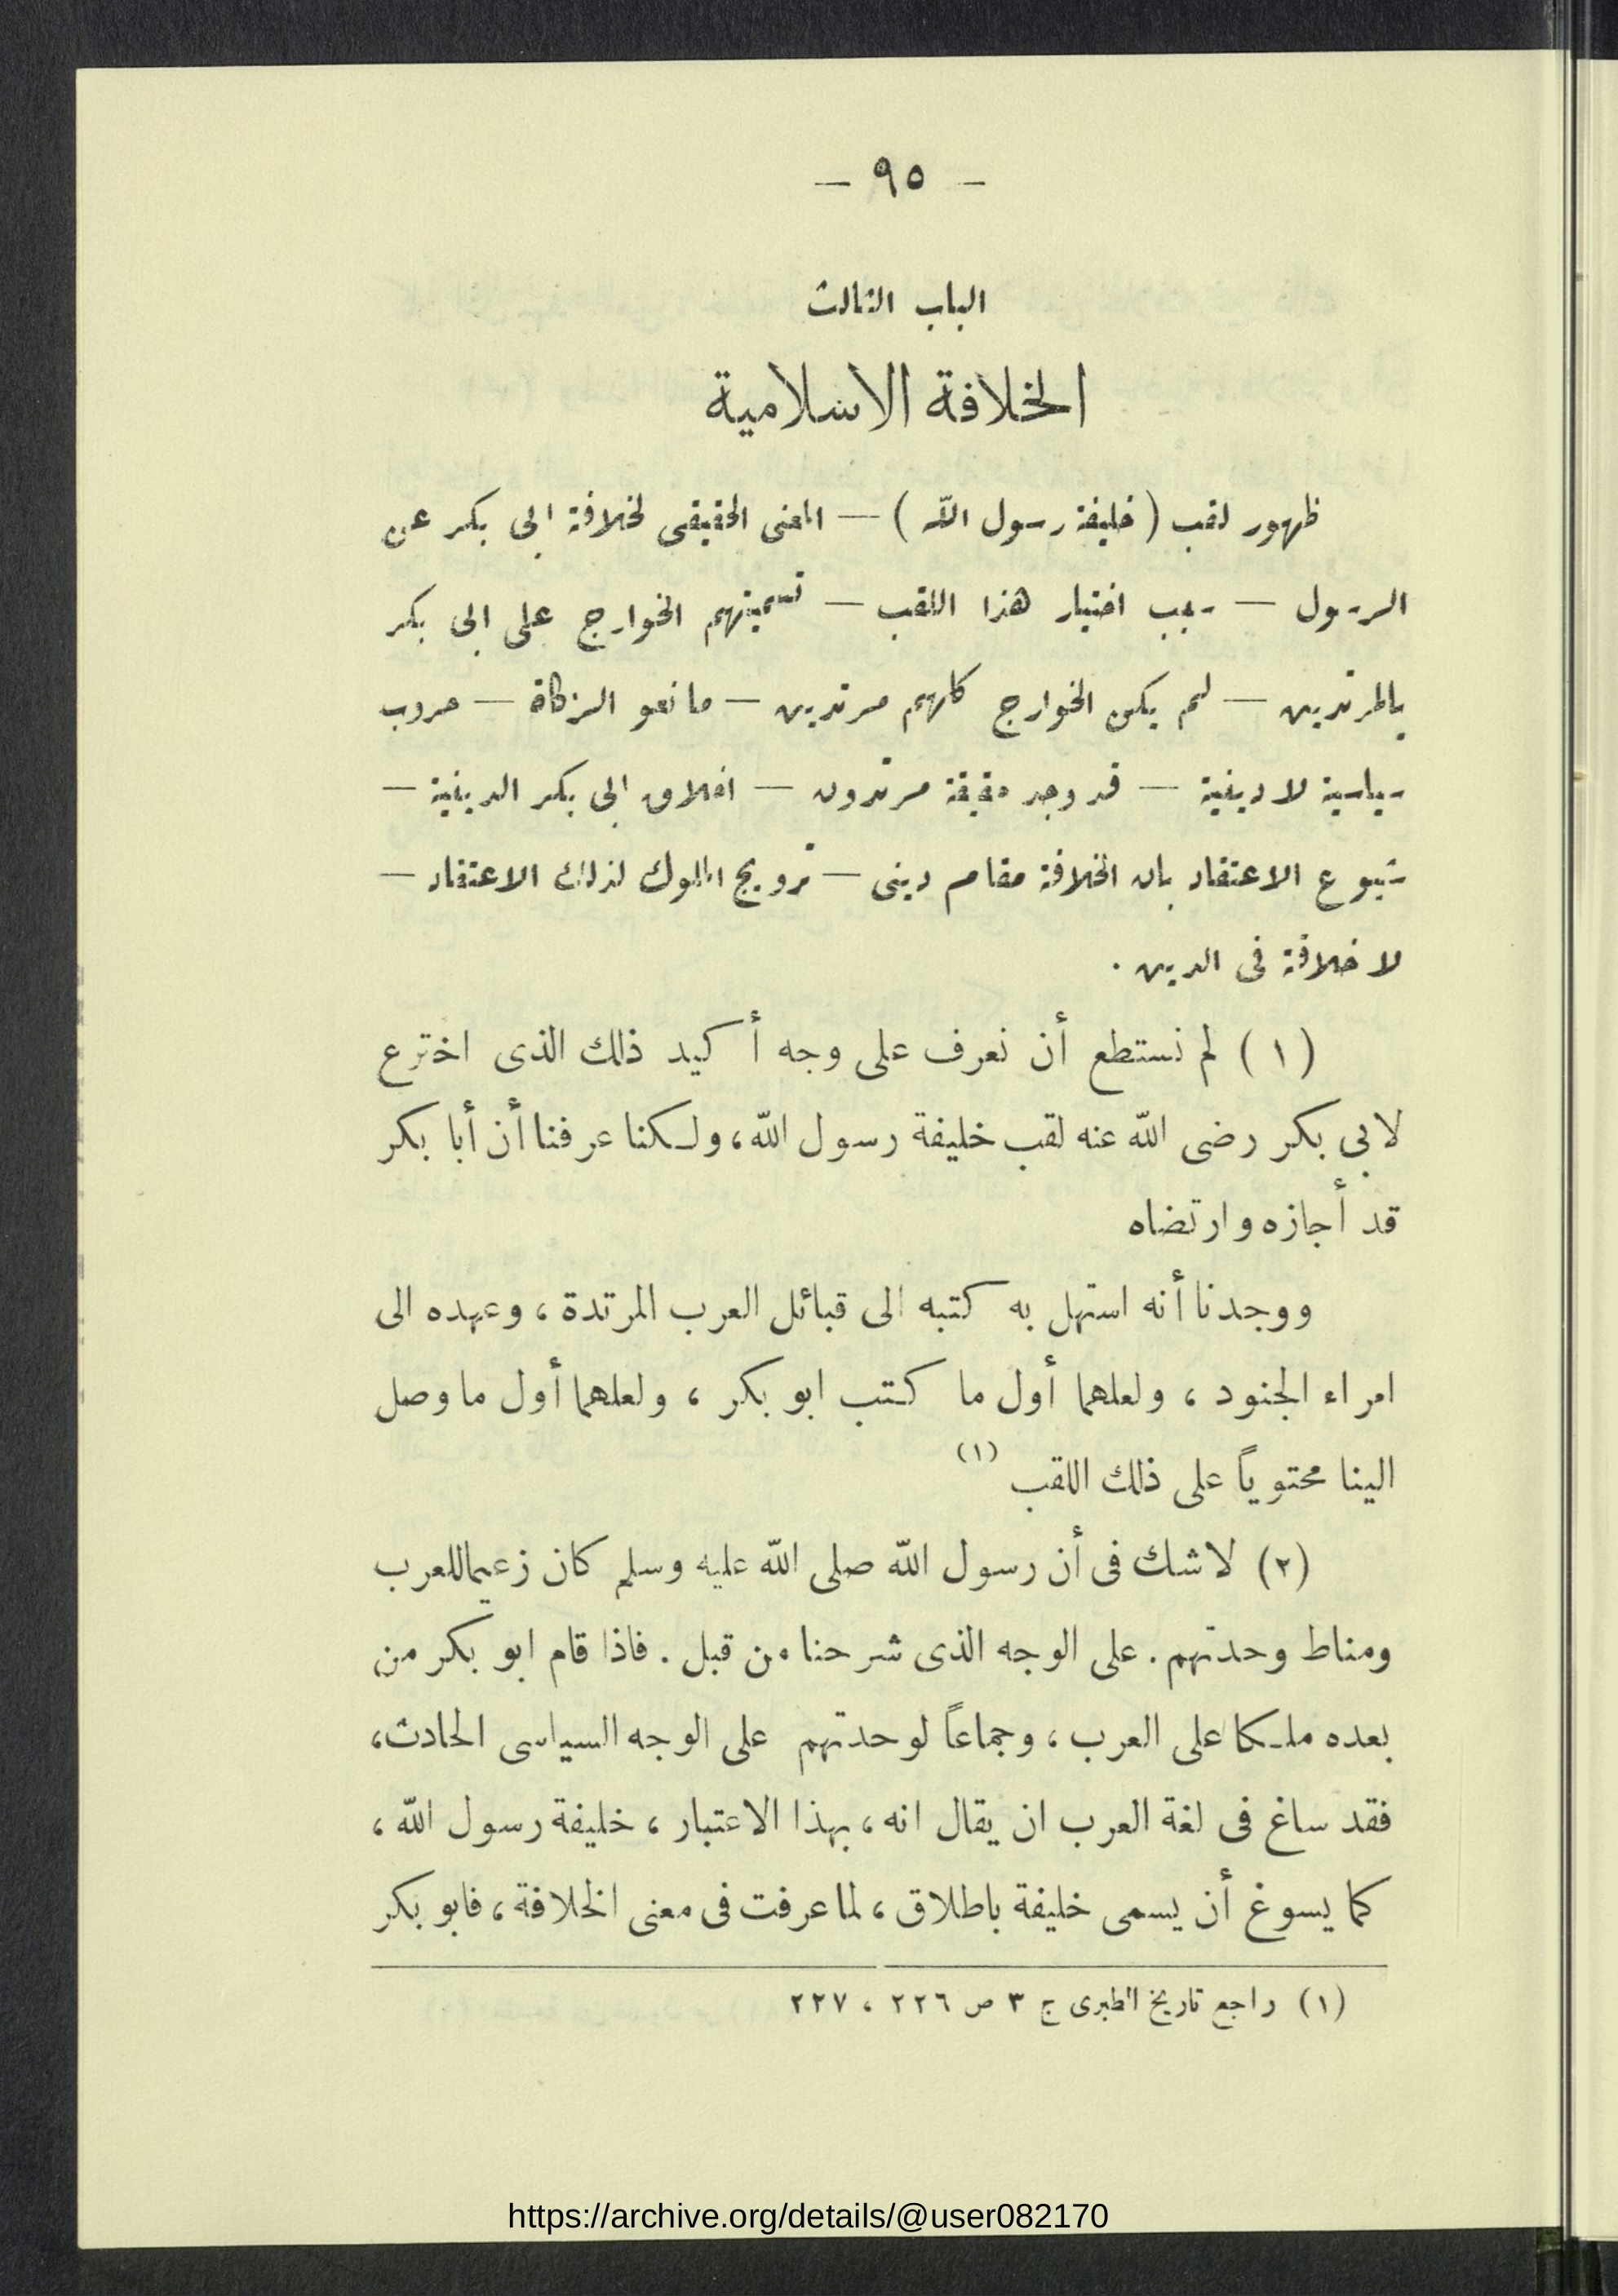 — ٩٥ —
الباب الثالث
الخلافة الاسلامية
ظهور لقب (خليفة رسول الله) — المعنى الحقيقى لخلافة ابى بكر عن
الرسول — سبب اختيار هذا اللقب — تسميتهم الخوارج على ابى بكر
بالمرتدين — لم يكن الخوارج كلهم مرتدين — مانعو الزكاة — حروب
سياسية لا دينية — قد وجد حقيقة مرتدون — اخلاق ابى بكر الدينية —
شيوع الاعتقاد بان الخلافة مقام دينى — ترويج الملوك لذلك الاعتقاد —
لا خلافة فى الدين .
(١) لم نستطع أن نعرف على وجه أكيد ذلك الذى اخترع
لابى بكر رضى الله عنه لقب خليفة رسول الله، ولكنا عرفنا أن أبا بكر
قد أجازه وارتضاه
ووجدنا أنه استهل به كتبه الى قبائل العرب المرتدة ، وعهده الى
امراء الجنود ، ولعلهما أول ما كتب ابو بكر ، ولعلهما أول ما وصل
الينا محتوياً على ذلك اللقب (١)
(٢) لاشك فى أن رسول الله صلى الله عليه وسلم كان زعيما للعرب
ومناط وحدتهم . على الوجه الذى شرحنا من قبل . فاذا قام ابو بكر من
بعده ملكا على العرب ، وجماعاً لوحدتهم على الوجه السياسى الحادث،
فقد ساغ فى لغة العرب ان يقال انه ، بهذا الاعتبار ، خليفة رسول الله ،
كما يسوغ أن يسمى خليفة باطلاق ، لما عرفت فى معنى الخلافة ، فابو بكر
(١) راجع تاريخ الطبرى ج ٣ ص ٢٢٦ ، ٢٢٧
https://archive.org/details/@user082170